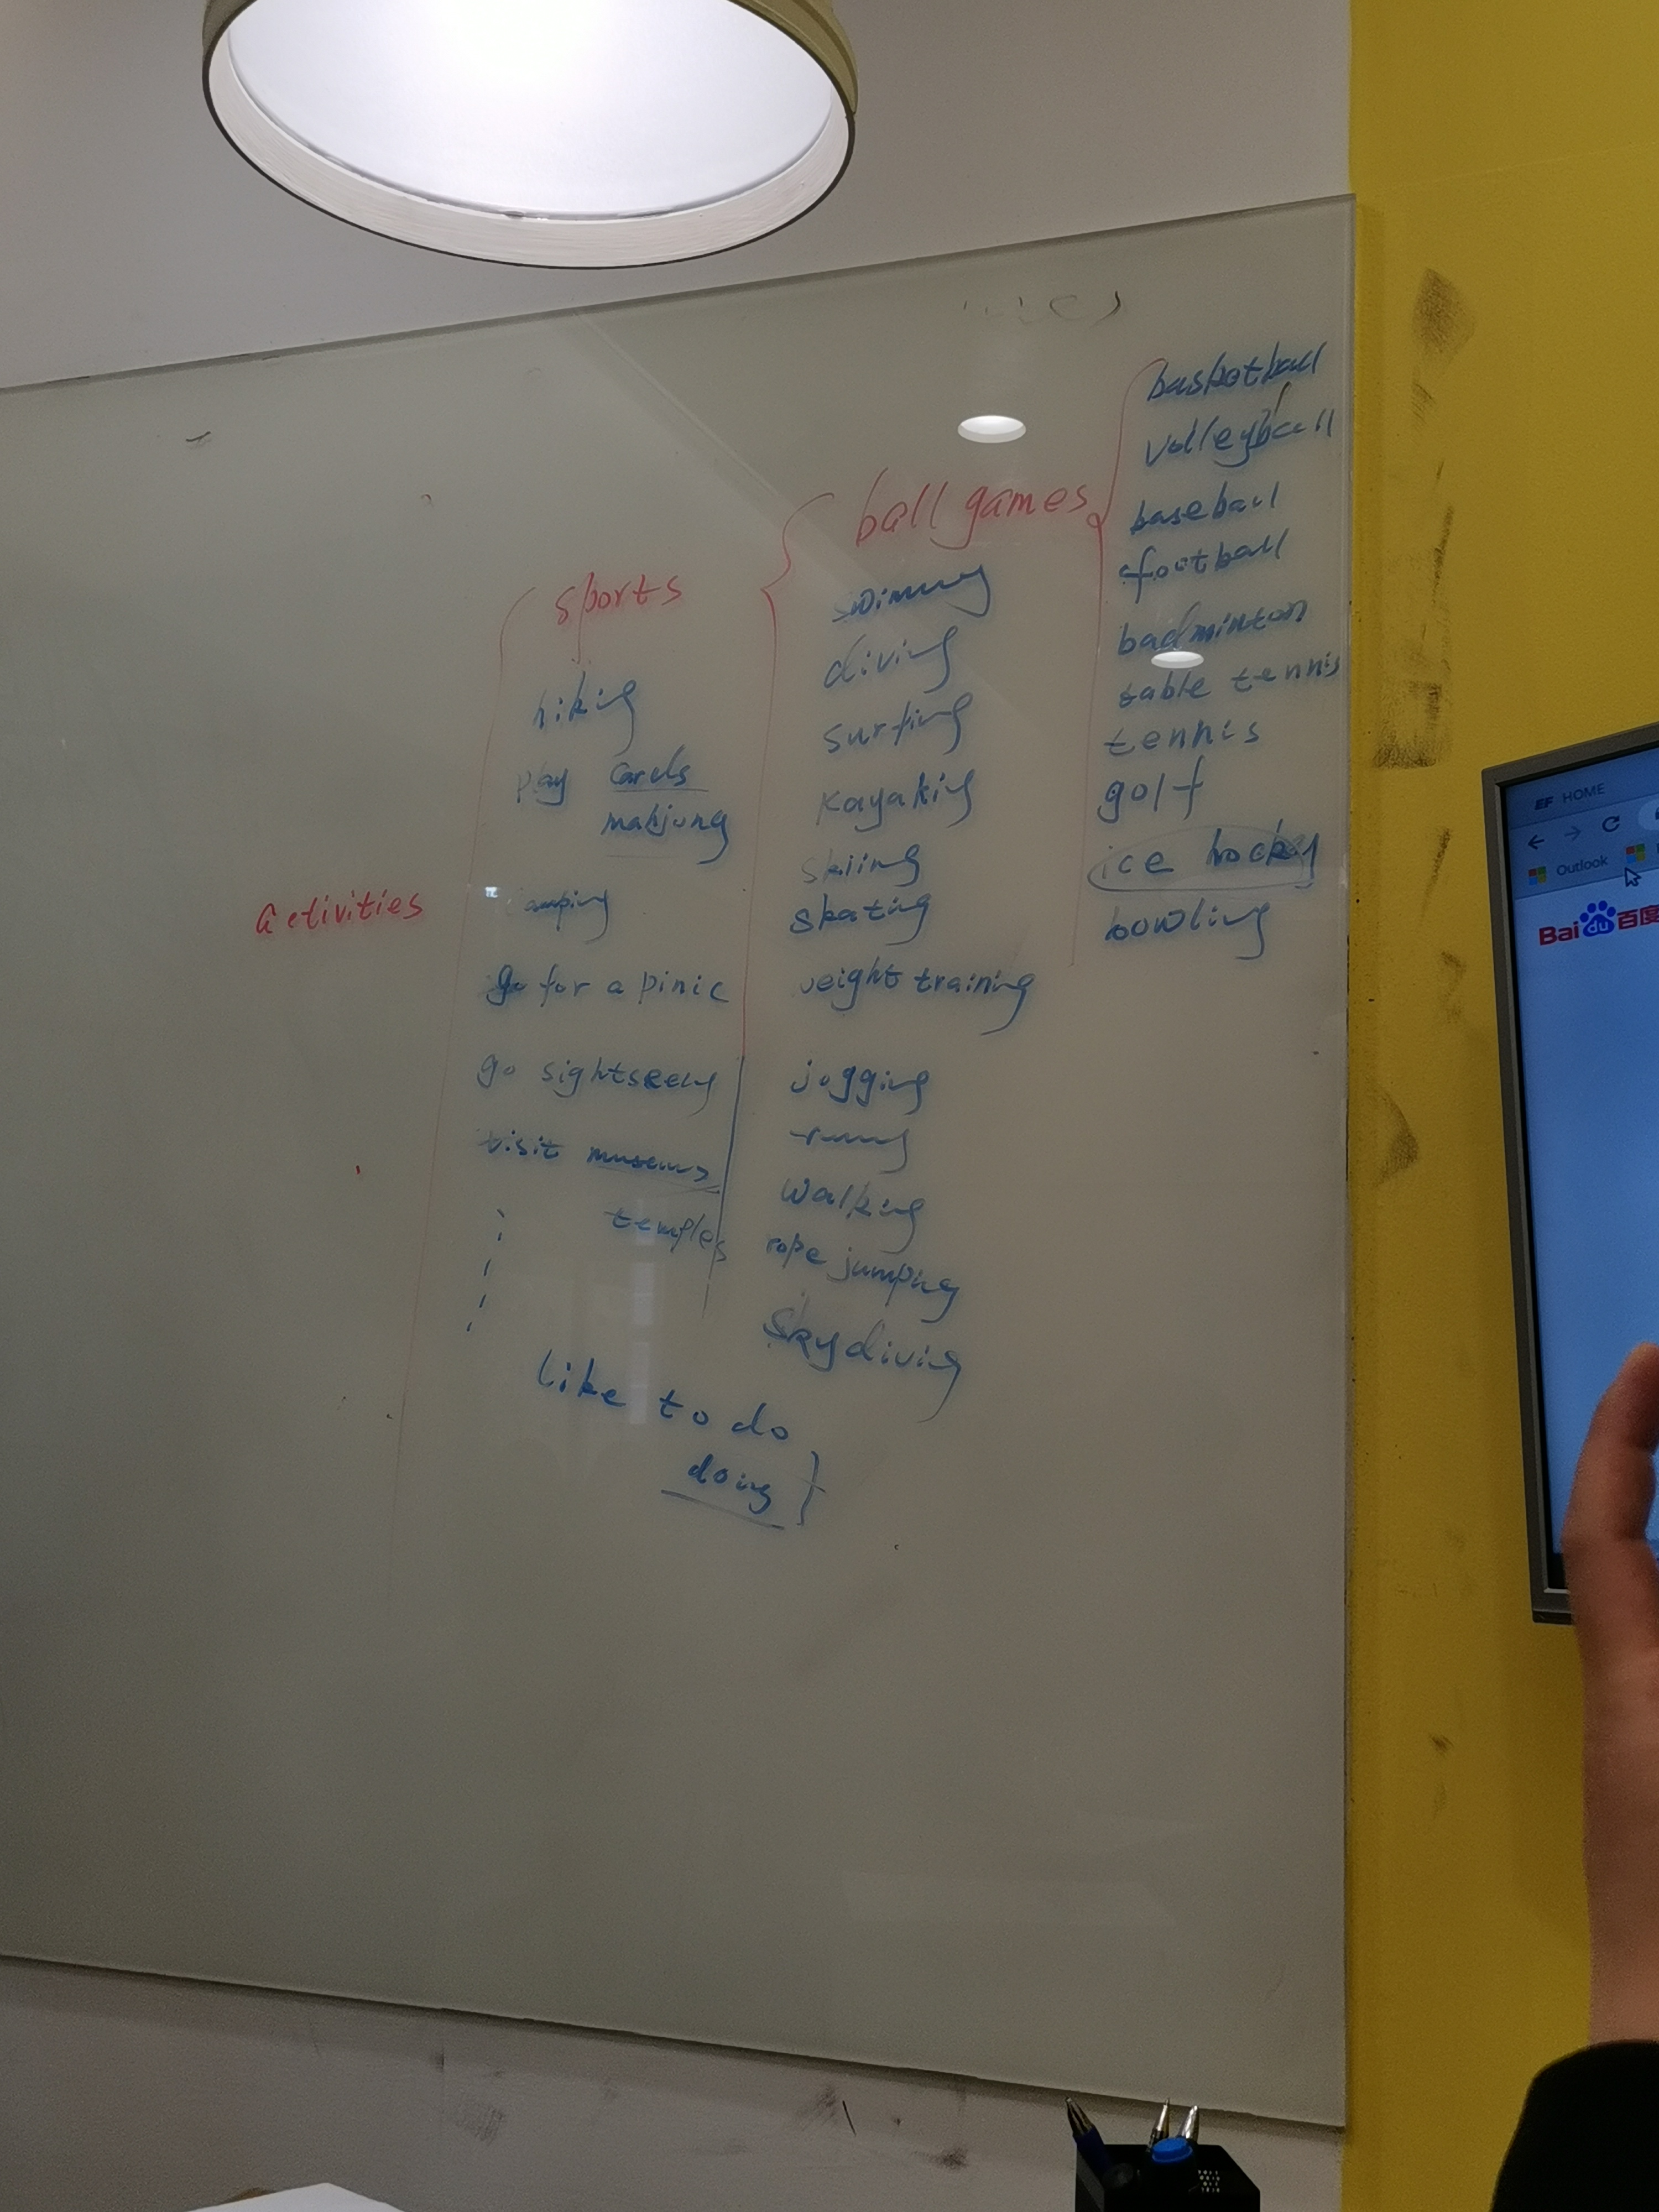 activities
sports
hiking
play cards
mahjong
camping
go for a pinic
go sightseeing
visit museums
temples
like to do
doing
ball games
swimming
diving
surfing
kayaking
skiing
skating
weight training
jogging
running
walking
rope jumping
skydiving
basketball
volleyball
baseball
football
badminton
table tennis
tennis
golf
ice hockey
bowling
EF HOME
Outlook
Bai du 百度